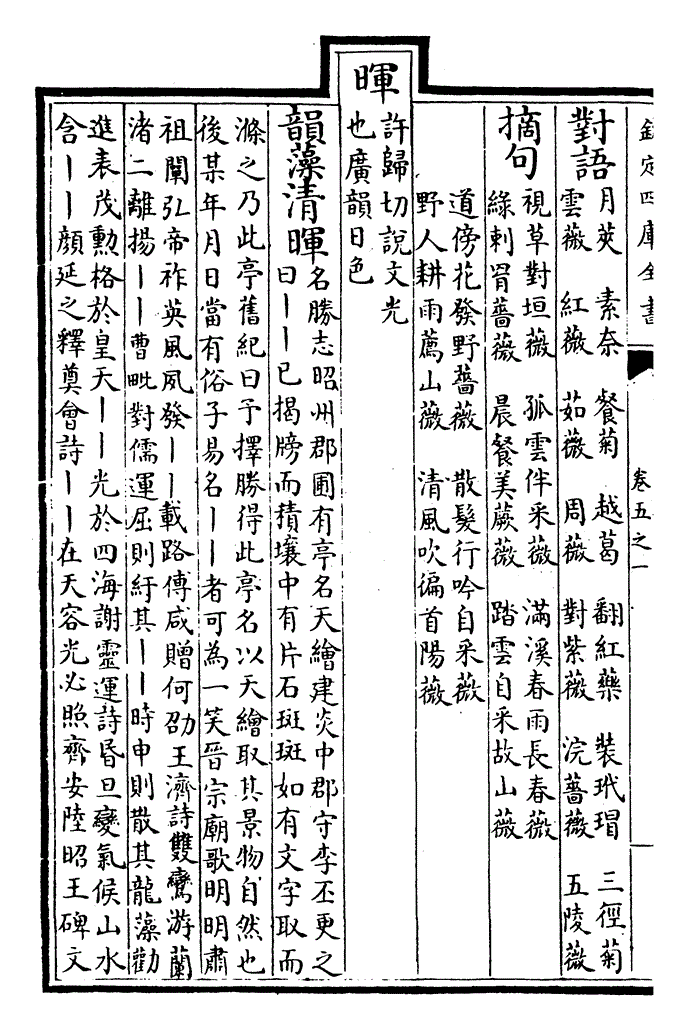 欽定四庫全書
卷五之一
對語
月莢　素奈　餐菊　越葛　翻紅藥　裝玳瑁　三徑菊
雲薇　紅薇　茹薇　周薇　對紫薇　浣薔薇　五陵薇
摘句
視草對垣薇　孤雲伴采薇　滿溪春雨長春薇
綠刺罥薔薇　晨餐美蕨薇　踏雲自采故山薇
道傍花發野薔薇　散髮行吟自采薇
野人耕雨薦山薇　清風吹徧首陽薇
暉
許歸切說文光
也廣韻日色
韻藻清暉
名勝志昭州郡圃有亭名天繪建炎中郡守李丕更之
曰丨丨已揭牓而積壤中有片石斑斑如有文字取而
滌之乃此亭舊紀曰予擇勝得此亭名以天繪取其景物自然也
後某年月日當有俗子易名丨丨者可為一笑晉宗廟歌明明肅
祖闡弘帝祚英風夙發丨丨載路傅咸贈何劭王濟詩雙鸞游蘭
渚二離揚丨丨曹毗對儒運屈則紆其丨丨時申則散其龍藻勸
進表茂勳格於皇天丨丨光於四海謝靈運詩昏旦變氣候山水
含丨丨顔延之釋奠會詩丨丨在天容光必照齊安陸昭王碑文